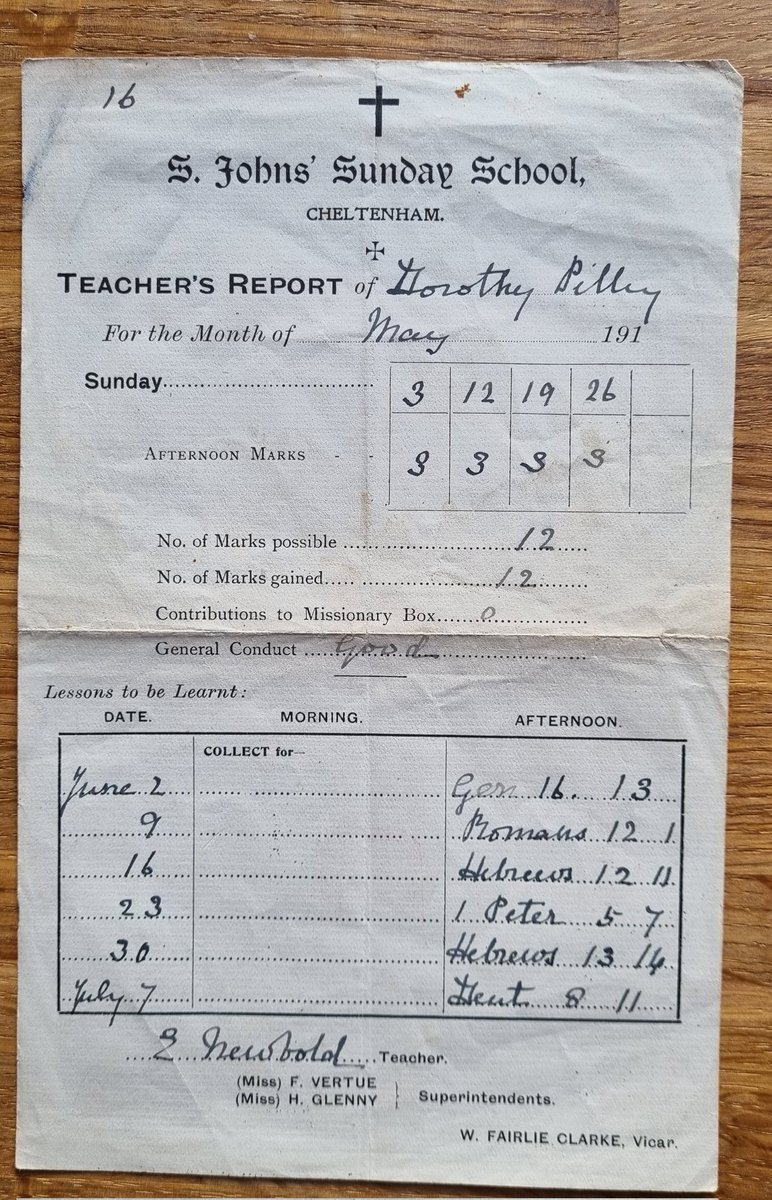 16
S. Johns' Sunday School,
CHELTENHAM.
TEACHER'S REPORT of Dorothy Pilley
For the Month of May 191
Sunday 3 12 19 26
AFTERNOON MARKS - - 3 3 3 3
No. of Marks possible 12
No. of Marks gained 12
Contributions to Missionary Box 0
General Conduct Good
Lessons to be Learnt:
DATE. MORNING. AFTERNOON.
COLLECT for—
June 2 Gen 16. 13
9 Romans 12 1
16 Hebrews 12 11
23 1 Peter 5 7
30 Hebrews 13 14
July 7 Deut 8 11
E Newbold Teacher.
(Miss) F. VERTUE
(Miss) H. GLENNY } Superintendents.
W. FAIRLIE CLARKE, Vicar.